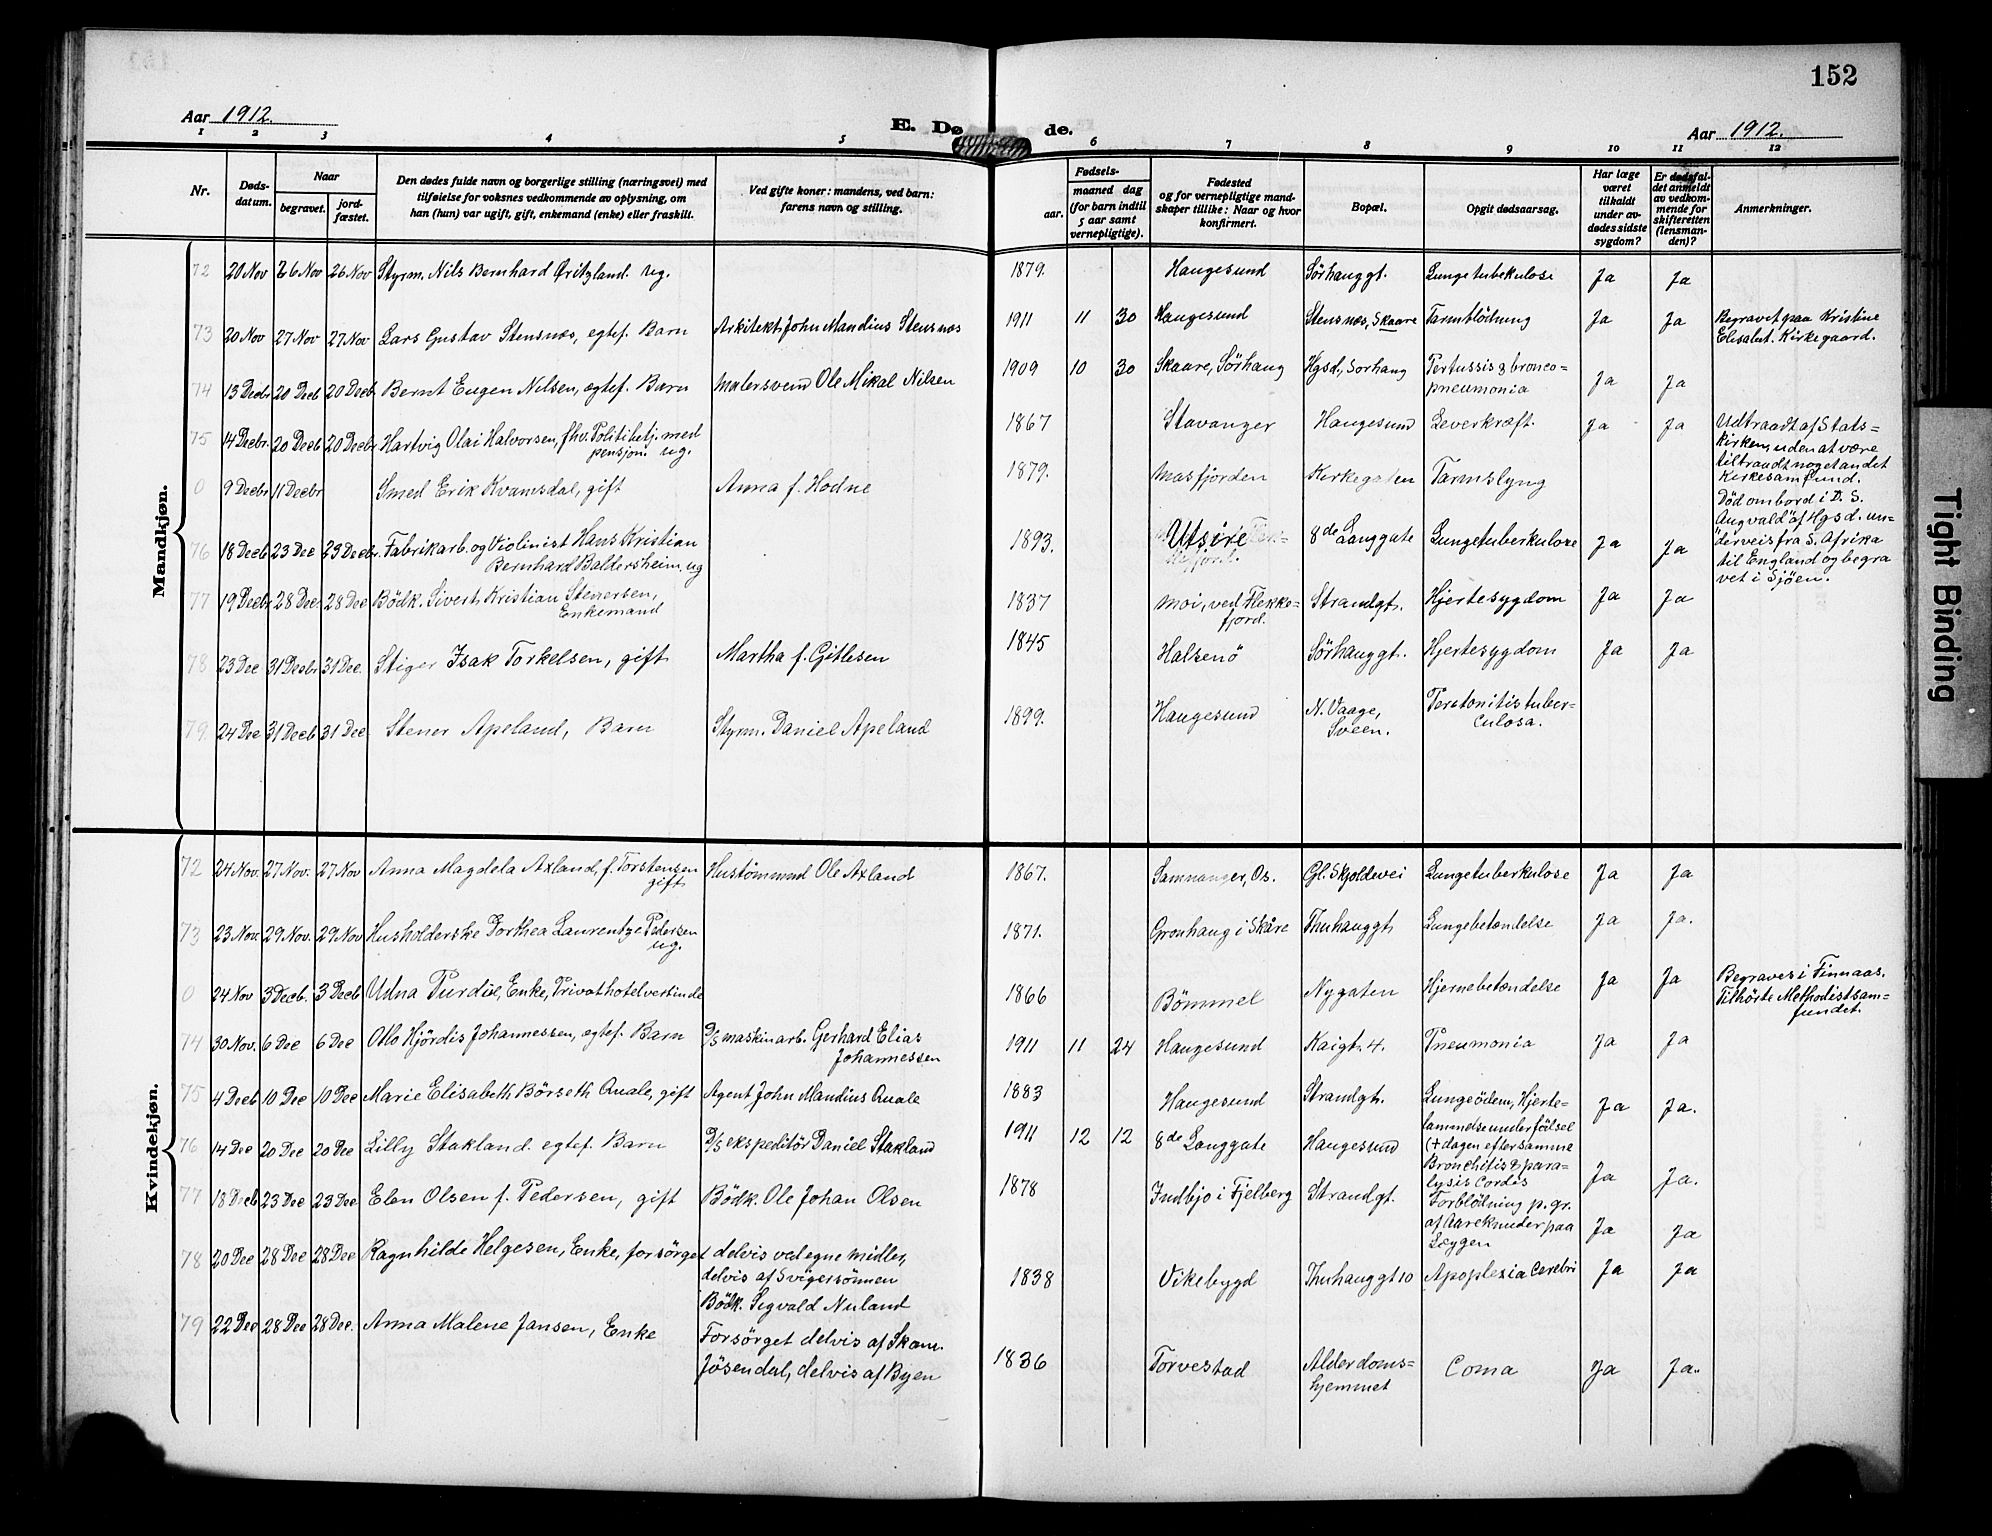 152
Aar 1912.
E. Døde.
Aar 1912.
1 2 3 4 5 6 7 8 9 10 11 12
Nr.
Døds-
datum.
Naar
begravet.
jord-
fæstet.
Den dødes fulde navn og borgerlige stilling (næringsvei) med
tilføielse for voksnes vedkommende av oplysning, om
han (hun) var ugift, gift, enkemand (enke) eller fraskilt.
Ved gifte koner: mandens, ved barn:
farens navn og stilling.
Fødsels-
aar.
maaned dag
(for barn indtil
5 aar samt
vernepligtige).
Fødested
og for vernepligtige mand-
skaper tillike: Naar og hvor
konfirmert.
Bopæl.
Opgit dødsaarsag.
Har læge
været
tilkaldt
under av-
dødes sidste
sygdom?
Er dødsfal-
det anmeldt
av vedkom-
mende for
skifteretten
(lensman-
den)?
Anmerkninger.
Mandkjøn.
72 20 Nov 26 Nov 26 Nov Styrm. Nils Bernhard Øritzland. ug. 1879. Haugesund Sörhauggt. Lungetubekulose Ja Ja
73 20 Nov 27 Nov 27 Nov Lars Gustav Stensnæs, egtef. Barn Arkitekt John Mandius Stensnæs 1911 11 30 Haugesund Stensnæs, Skaare Tarmblödning Ja Ja Begravet paa Kristine
Elisabet. Kirkegaard.
74 13 Decbr 20 Decb 20 Decbr Bernt Eugen Nilsen, egtef. Barn Malersvend Ole Mikal Nilsen 1909 10 30 Skaare, Sörhaug Hgsd., Sorhaug Pertussis & bronco-
pneumonia Ja Ja
75 14 Decbr. 20 Decb 20 Decbr Hartvig Olai Halvorsen, fhv. Politibetj. med
pensjon. ug. 1867 Stavanger Haugesund Leverkræft. Ja Ja Udtraadt af Stats-
kirken, uden at være
tiltraadt noget andet
Kirkesamfund.
0 9 Decbr 11 Decbr Smed Erik Kvamsdal, gift Anna f. Hodne 1879. Masfjorden Kirkegaten Tarmslyng
Död ombord i D. S.
"Augvald" af Hgsd. un-
derveis fra S. Afrika
til England og begra
vet i Sjöen.
76 18 Decb 23 Dec 23 Decbr. Fabrikarb. og Violinist Hans Kristian
Bernhard Baldersheim, ug 1893. Utsire 8de Langgate Lungetuberkulose Ja Ja
77 19 Decbr 28 Dec 28 Dec Bödk. Sivert Kristian Stenersen,
Enkemand 1837 Moi, ved Flekke-
fjord. Strandgt. Hjertesygdom Ja Ja
78 23 Dec 31 Decbr 31 Dec. Stiger Isak Torkelsen, gift Martha f. Gitlesen 1845 Halsenö Sörhauggt. Hjertesygdom Ja Ja
79 24 Dec 31 Decb 31 Dec Stener Apeland, Barn Styrm. Daniel Apeland 1899. Haugesund N. Vaage,
Sveen. Peretonitis tuber-
culosa.
Kvindekjøn.
72 24 Nov. 27 Nov. 27 Nov Anna Magdela Axland, f. Torstensen
gift Hustömmrmd Ole Axland 1867. Samnanger, Os. Gl. Skjoldevei Lungetuberkulose Ja Ja
73 23 Nov. 29 Nov. 29 Nov Husholderske Dorthea Laurentze Pedersen
ug. 1871. Gronhaug i Skåre Thuhauggt Lungebetændelse Ja Ja.
0 24 Nov 3 Decb. 3 Decb Udna Turdie, Enke, Privathotelvertinde 1866 Bömmel Nygaten Hjernebetændelse Ja Ja Begraves i Finnaas.
Tilhörte Methodistsam-
fundet.
74 30 Nov. 6 Dec 6 Dec Otto Hjördis Johannessen, egtef. Barn D/S maskinarb. Gerhard Elias
Johannessen 1911 11 24 Haugesund Kaigt. 4. Pneumonia Ja Ja
75 4 Decb 10 Dec 10 Dec Marie Elisabeth Börseth Qvale, gift Agent John Mandius Qvale 1883 Haugesund Strandgt. Lungeödem, Hjerte-
lammelse under födsel
(+ dagen efter samme Ja Ja.
76 14 Dec 20 Dec 20 Dec Lilly Stakland. egtef. Barn D/S ekspeditör Daniel Stakland 1911 12 12 8de Langgate Haugesund Bronchitis & para-
lysis Cordis Ja Ja.
77 18 Decb 23 Dec 23 Dec Elen Olsen f. Pedersen, gift Bödk. Ole Johan Olsen 1878 Indbjo i Fjelberg Strandgt. Forblödning p. gr.
af Aareknuder paa
Læggen Ja Ja
78 20 Dec 28 Dec 28 Dec Ragnhilde Helgesen, Enke, forsörget delvis ved egne midler,
delvis af Svigersönnen
Bödk. Sigvald Nuland 1838 Vikebygd Thuhauggt 10 Apoplexia Cerebri Ja Ja
79 22 Dec 28 Dec 28 Dec. Anna Malene Jansen, Enke Forsörget delvis af Skom.
Jösendal, delvis af Byen 1836 Torvestad Alderdoms-
hjemmet Coma Ja Ja.
Tight Binding